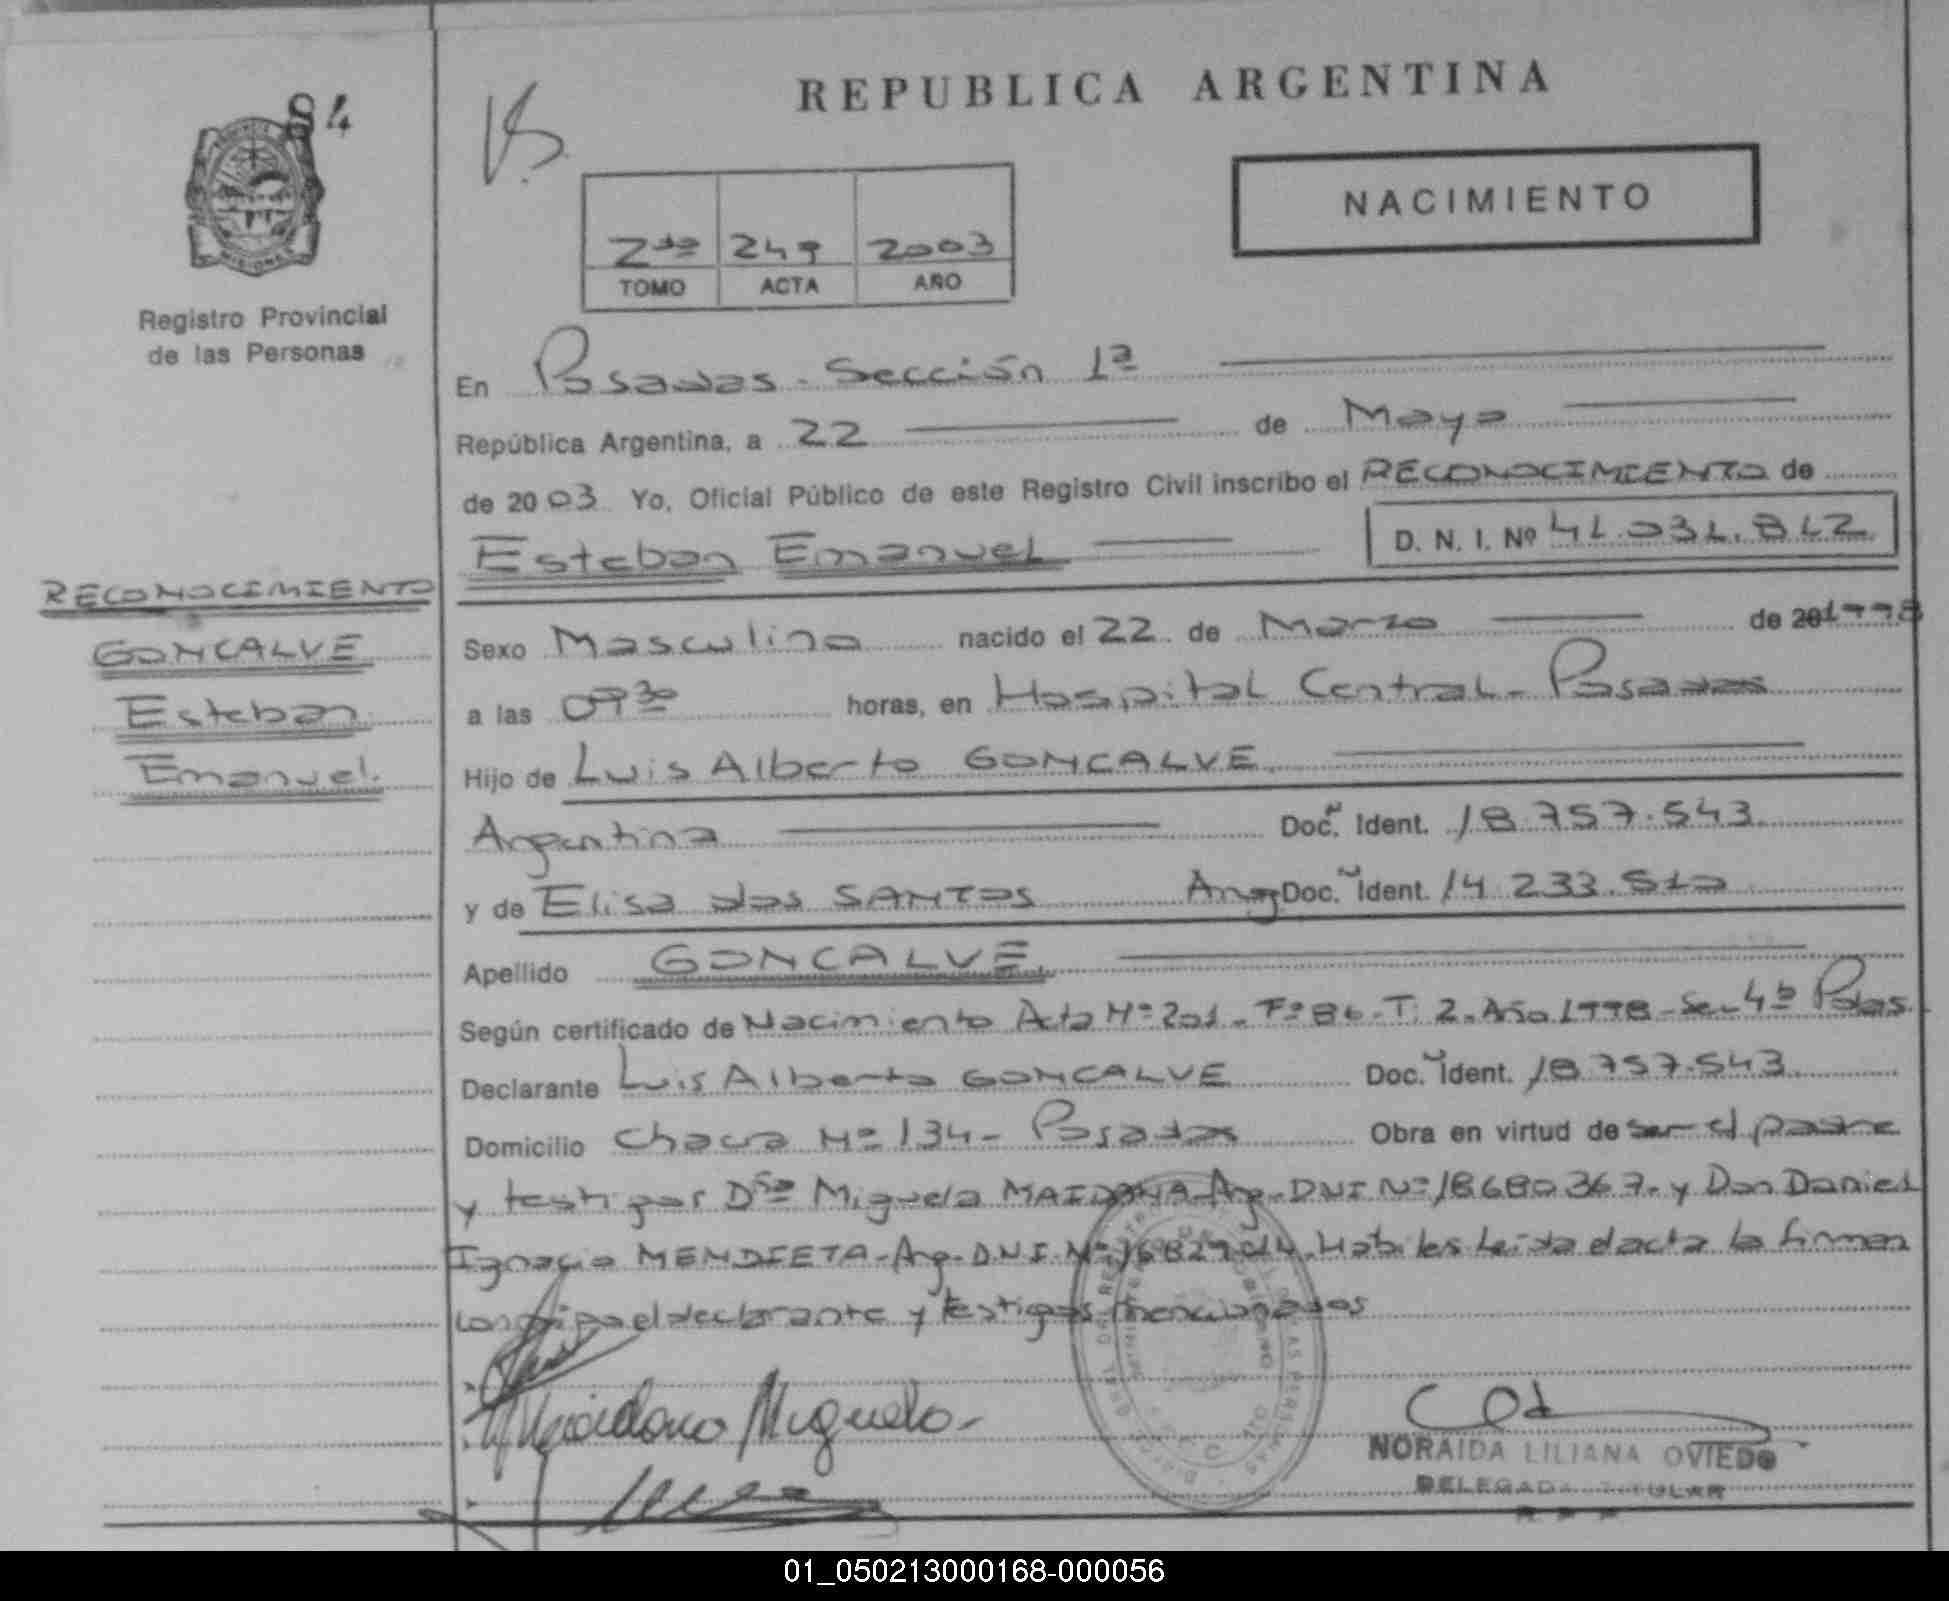 84
REPUBLICA ARGENTINA
NACIMIENTO
2do 249 2003
TOMO ACTA AÑO
MISIONES
Registro Provincial
de las Personas
En Posadas - Sección 1ª
República Argentina, a 22 de Mayo
de 2003 Yo, Oficial Público de este Registro Civil inscribo el RECONOCIMIENTO de
Esteban Emanuel D. N. I. Nº 41.031.812
RECONOCIMIENTO
GONCALVE
Esteban
Emanuel.
Sexo Masculino nacido el 22 de Marzo de 1998
a las 09 30 horas, en Hospital Central - Posadas
Hijo de Luis Alberto GONCALVE
Argentina Doc. Ident. 18.757.543
y de Elisa dos SANTOS Arg Doc. Ident. 14.233.510
Apellido GONCALVE
Según certificado de Nacimiento Acta Nº 201 - Fº 86 - T: 2 - Año 1998 - Sec 4ª Pdas.
Declarante Luis Alberto GONCALVE Doc. Ident. 18.757.543
Domicilio Chacra Nº 134 - Posadas Obra en virtud de ser el padre
y testigos Dña Miguela MAIDANA - Arg - DNI Nº 18680367 - y Don Daniel
Ignacio MENDIETA - Arg - D.N.I. Nº Habiles Leida el acta la firman
conmigo el declarante y testigos mencionados
Maidana Miguela
NORAIDA LILIANA OVIEDO
DELEGADA TITULAR
01_050213000168-000056